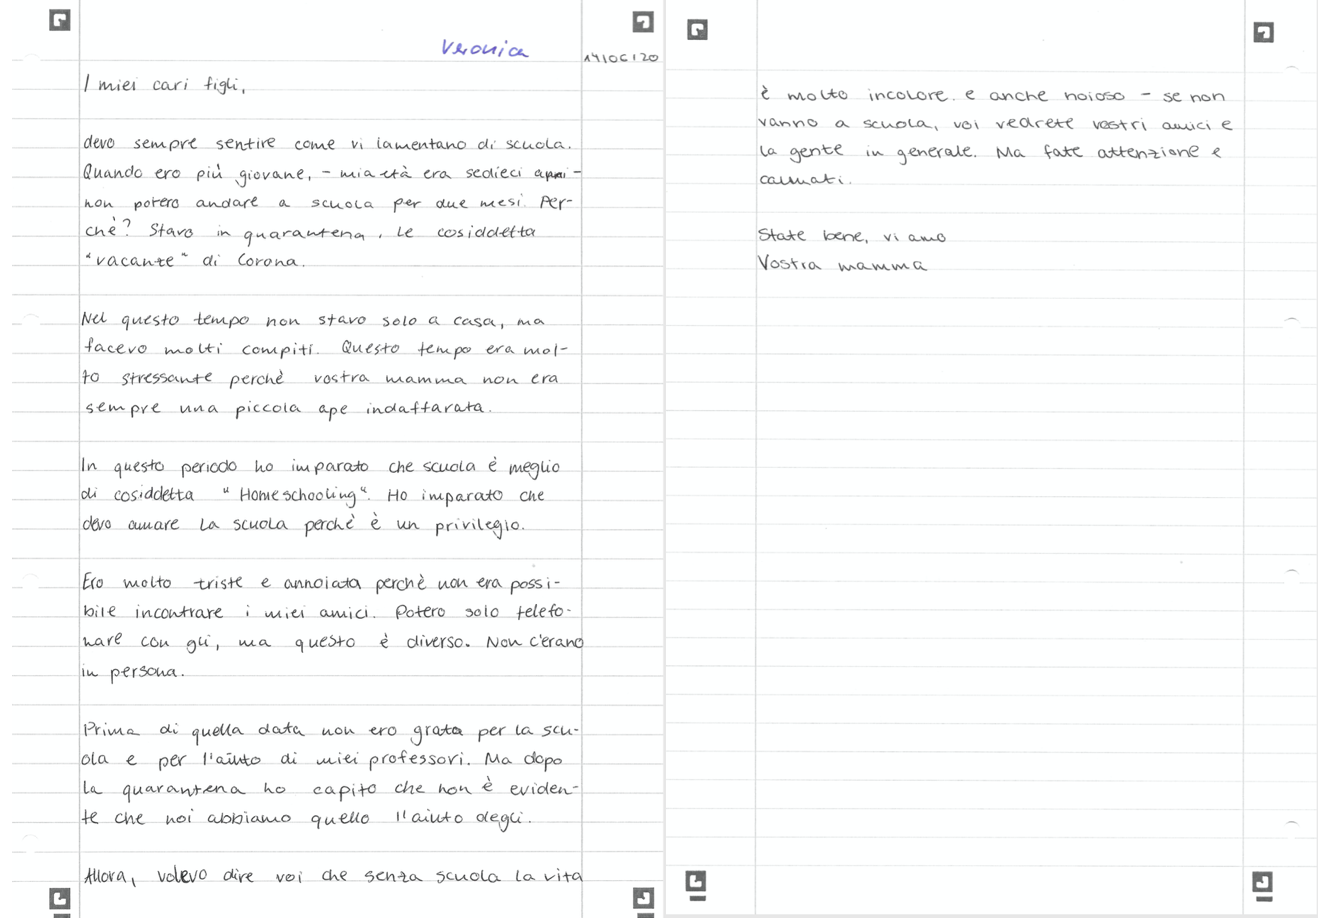 Veronica
14/06/20
I miei cari figli,
devo sempre sentire come vi lamentano di scuola.
Quando ero più giovane, - mia età era sedieci anni -
non potero andare a scuola per due mesi. Per-
chè? Stavo in quarantena, le cosiddetta
"vacante" di Corona.
Nel questo tempo non stavo solo a casa, ma
facevo molti compiti. Questo tempo era mol-
to stressante perchè vostra mamma non era
sempre una piccola ape indaffarata.
In questo periodo ho imparato che scuola è meglio
di cosiddetta "Homeschooling". Ho imparato che
devo amare la scuola perchè è un privilegio.
Ero molto triste e annoiata perchè non era possi-
bile incontrare i miei amici. Potero solo telefo-
nare con gli, ma questo è diverso. Non c'erano
in persona.
Prima di quella data non ero grata per la scu-
ola e per l'aiuto di miei professori. Ma dopo
la quarantena ho capito che non è eviden-
te che noi abbiamo quello l'aiuto degli.
Allora, volevo dire voi che senza scuola la vita
è molto incolore. e anche noioso - se non
vanno a scuola, voi vedrete vostri amici e
la gente in generale. Ma fate attenzione e
calmati.
State bene, vi amo
Vostra mamma